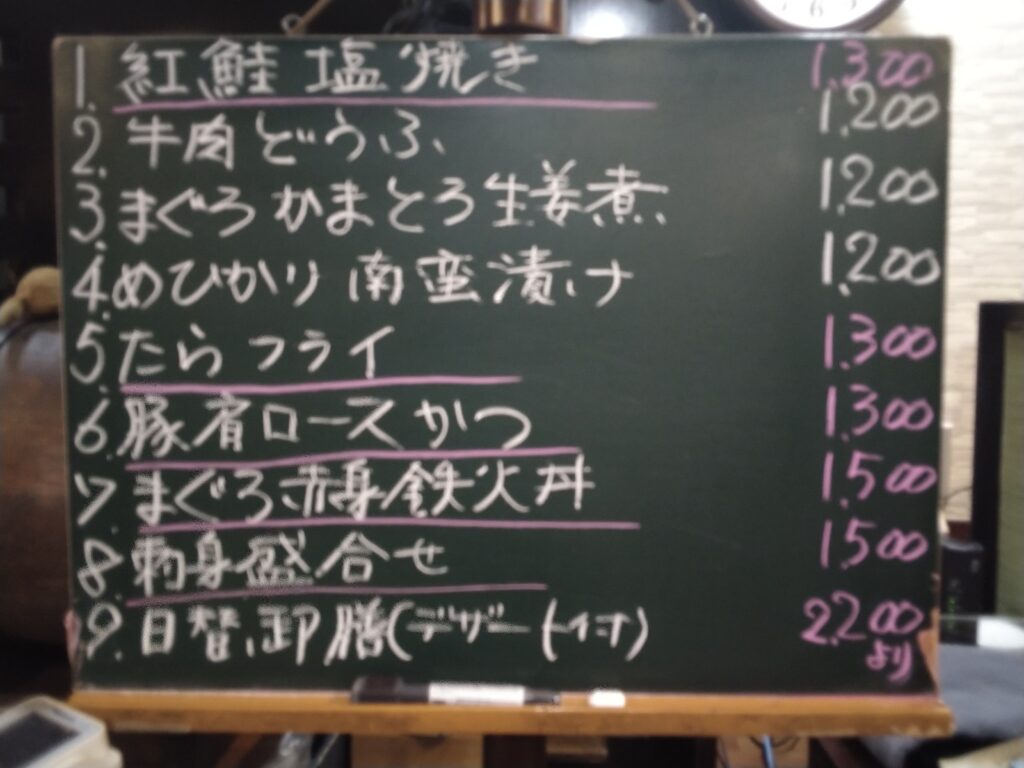 1. 紅鮭 塩焼き 1,300
2. 牛肉どうふ 1,200
3. まぐろかまとろ生姜煮 1,200
4. めひかり 南蛮漬け 1,200
5. たらフライ 1,300
6. 豚肩ロースかつ 1,300
7. まぐろ赤身鉄火丼 1,500
8. 刺身盛合せ 1,500
9. 日替御膳(デザート付) 2,200
より